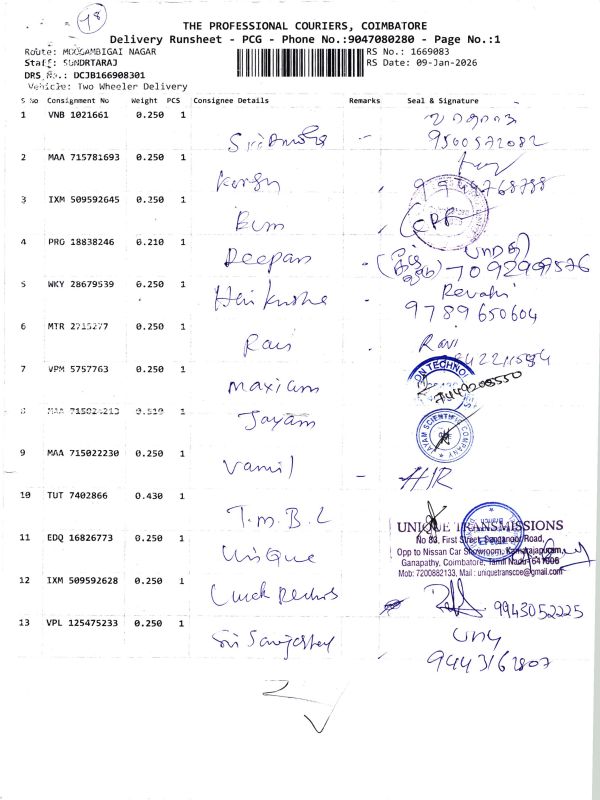 78
THE PROFESSIONAL COURIERS, COIMBATORE
Delivery Runsheet - PCG - Phone No.:9047080280 - Page No.:1
Route: MOOGAMBIGAI NAGAR
RS No.: 1669083
Staff: SUNDRTARAJ
RS Date: 09-Jan-2026
DRS No.: DCJB166908301
Vehicle: Two Wheeler Delivery
S No Consignment No Weight PCS Consignee Details Remarks Seal & Signature
1 VNB 1021661 0.250 1
9500572082
2 MAA 715781693 0.250 1
3 IXM 509592645 0.250 1
4 PRG 18838246 0.210 1 Deepam
7092909576
5 WKY 28679539 0.250 1 Revathi
9789650604
6 MTR 2715277 0.250 1 Ravi
7 VPM 5757763 0.250 1 Maxiam
ON TECHNOL
8 MAA 715024213 0.510 1 Jayam
JAYAM SCIENTIFIC COMPANY
9 MAA 715022230 0.250 1 Vamil - HR
10 TUT 7402866 0.430 1 T.M.B.L
11 EDQ 16826773 0.250 1 Unique
UNIQUE TRANSMISSIONS
No 83, First Street, Sanganoor Road,
Opp to Nissan Car Showroom, Kamarajapuram,
Ganapathy, Coimbatore, Tamil Nadu-641006
Mob: 7200882133, Mail : uniquetranscbe@gmail.com
12 IXM 509592628 0.250 1
9943052225
13 VPL 125475233 0.250 1
9443162807